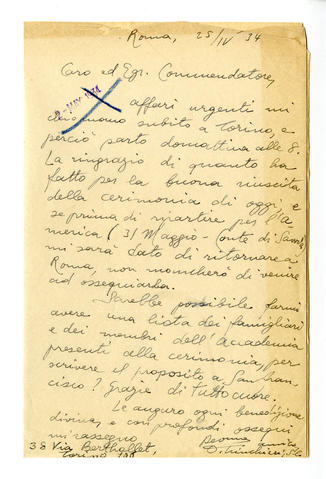 Roma, 25/IV 34
Caro ed Egr. Commendatore,
2 - MAG. 1934
affari urgenti mi
chiamano subito a Torino, e
perciò parto domattina alle 8.
La ringrazio di quanto ha
fatto per la buona riuscita
della cerimonia di oggi e
se prima di ripartire per l'A
merica (31 Maggio - Conte di Savoia)
mi sarà dato di ritornare a
Roma, non mancherò di venire
ad ossequiarla.
Sarebbe possibile farmi
avere una lista dei famigliari
e dei membri dell'Accademia
presenti alla cerimonia, per
scrivere il proposito a San Fran
cisco? Grazie di tutto cuore.
Le auguro ogni benedizione
divina, e con profondi ossequi
mi rassegno
38 Via Berthollet,
Torino
D. Trinchieri, S.C.